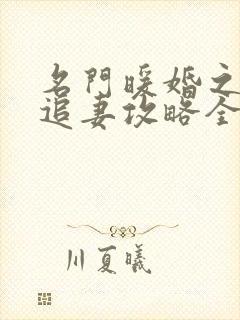 名門暖婚之
追妻攻略全
川夏曦